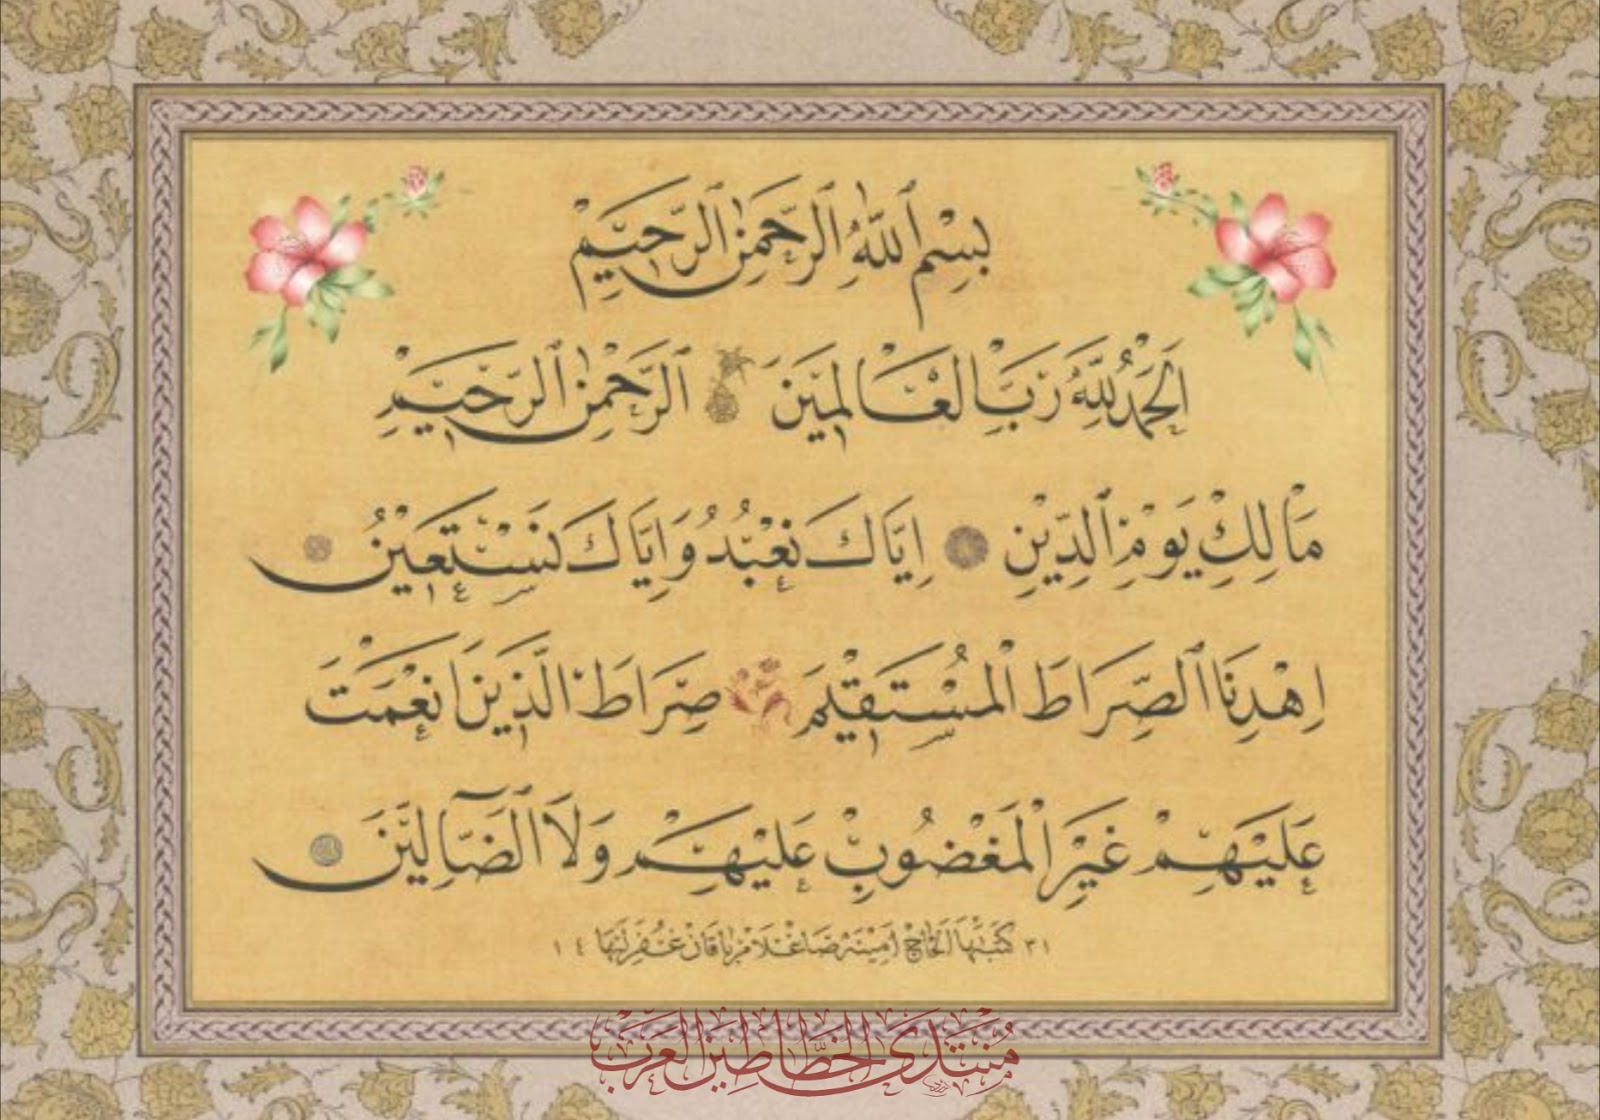 بِسْمِ ٱللّٰهِ ٱلرَّحْمٰنِ ٱلرَّحِيْمِ
اَلْحَمْدُ لِلّٰهِ رَبِّ الْعَالَمِيْنَ ٱلرَّحْمٰنِ ٱلرَّحِيْمِ
مَالِكِ يَوْمِ ٱلدِّيْنِ اِيَّاكَ نَعْبُدُ وَاِيَّاكَ نَسْتَعِيْنُ
اِهْدِنَا ٱلصِّرَاطَ الْمُسْتَقِيْمَ صِرَاطَ الَّذِيْنَ اَنْعَمْتَ
عَلَيْهِمْ غَيْرِ الْمَغْضُوْبِ عَلَيْهِمْ وَلَا ٱلضَّآلِّيْنَ
كَتَبَتْهَا الْحَاجَّ اَمِيْنَه غُفِرَ لَهَا
مُنْتَدَى الْخَطَّاطِيْنَ الْعَرَبْ